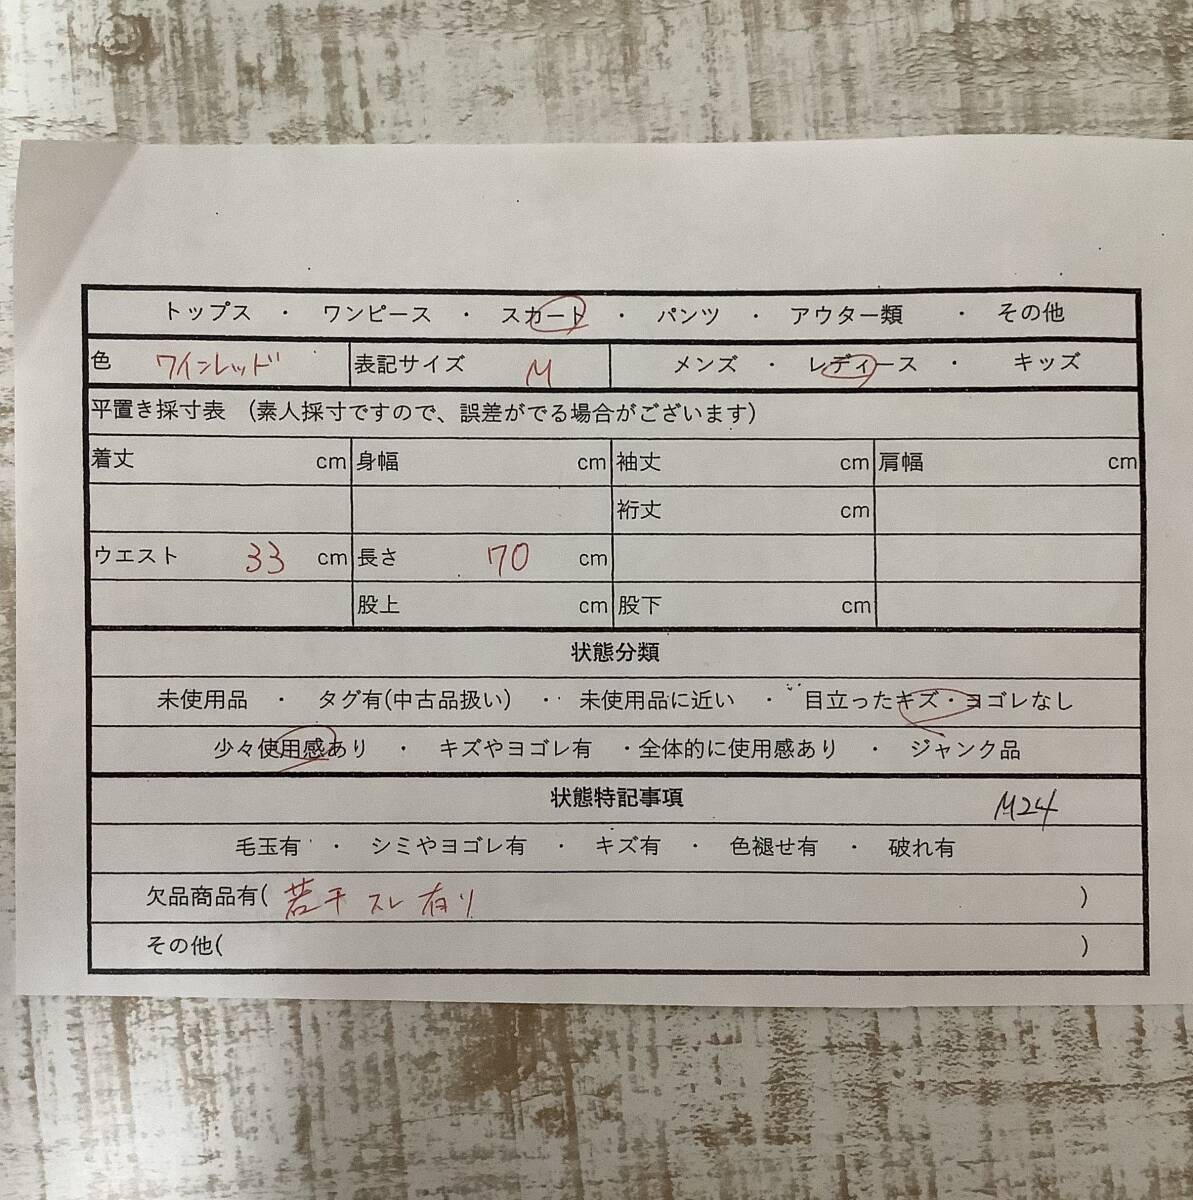 トップス ・ ワンピース ・ スカート ・ パンツ ・ アウター類 ・ その他
色 ワインレッド 表記サイズ M メンズ ・ レディース ・ キッズ
平置き採寸表 (素人採寸ですので、誤差がでる場合がございます)
着丈 cm 身幅 cm 袖丈 cm 肩幅 cm
裄丈 cm
ウエスト 33 cm 長さ 70 cm
股上 cm 股下 cm
状態分類
未使用品 ・ タグ有(中古品扱い) ・ 未使用品に近い ・ 目立ったキズ・ヨゴレなし
少々使用感あり ・ キズやヨゴレ有 ・全体的に使用感あり ・ ジャンク品
状態特記事項 M24
毛玉有 ・ シミやヨゴレ有 ・ キズ有 ・ 色褪せ有 ・ 破れ有
欠品商品有( 若干スレ有り )
その他( )